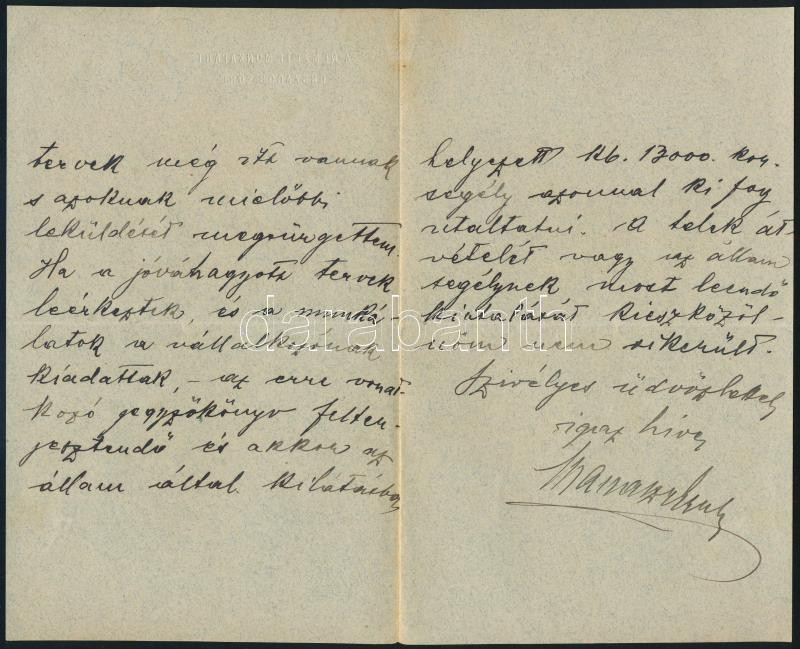 tervek még itt vannak
s azoknak mielőbbi
leküldését megsürgettem.
Ha a jóváhagyott tervek
leérkeztek, és a munká-
latok a vállalkozónak
kiadattak, – az erre vonat-
kozó jegyzőkönyv felter-
jesztendő és akkor az
állam által kilátásba
helyezett kb. 13000. kor.
segély azonnal ki fog
utaltatni. A telek át-
vételét vagy az állam
segélynek most leendő
kiutalását kieszközöl-
nöm nem sikerült.
Szivélyes üdvözlettel
igaz hive
darabanth